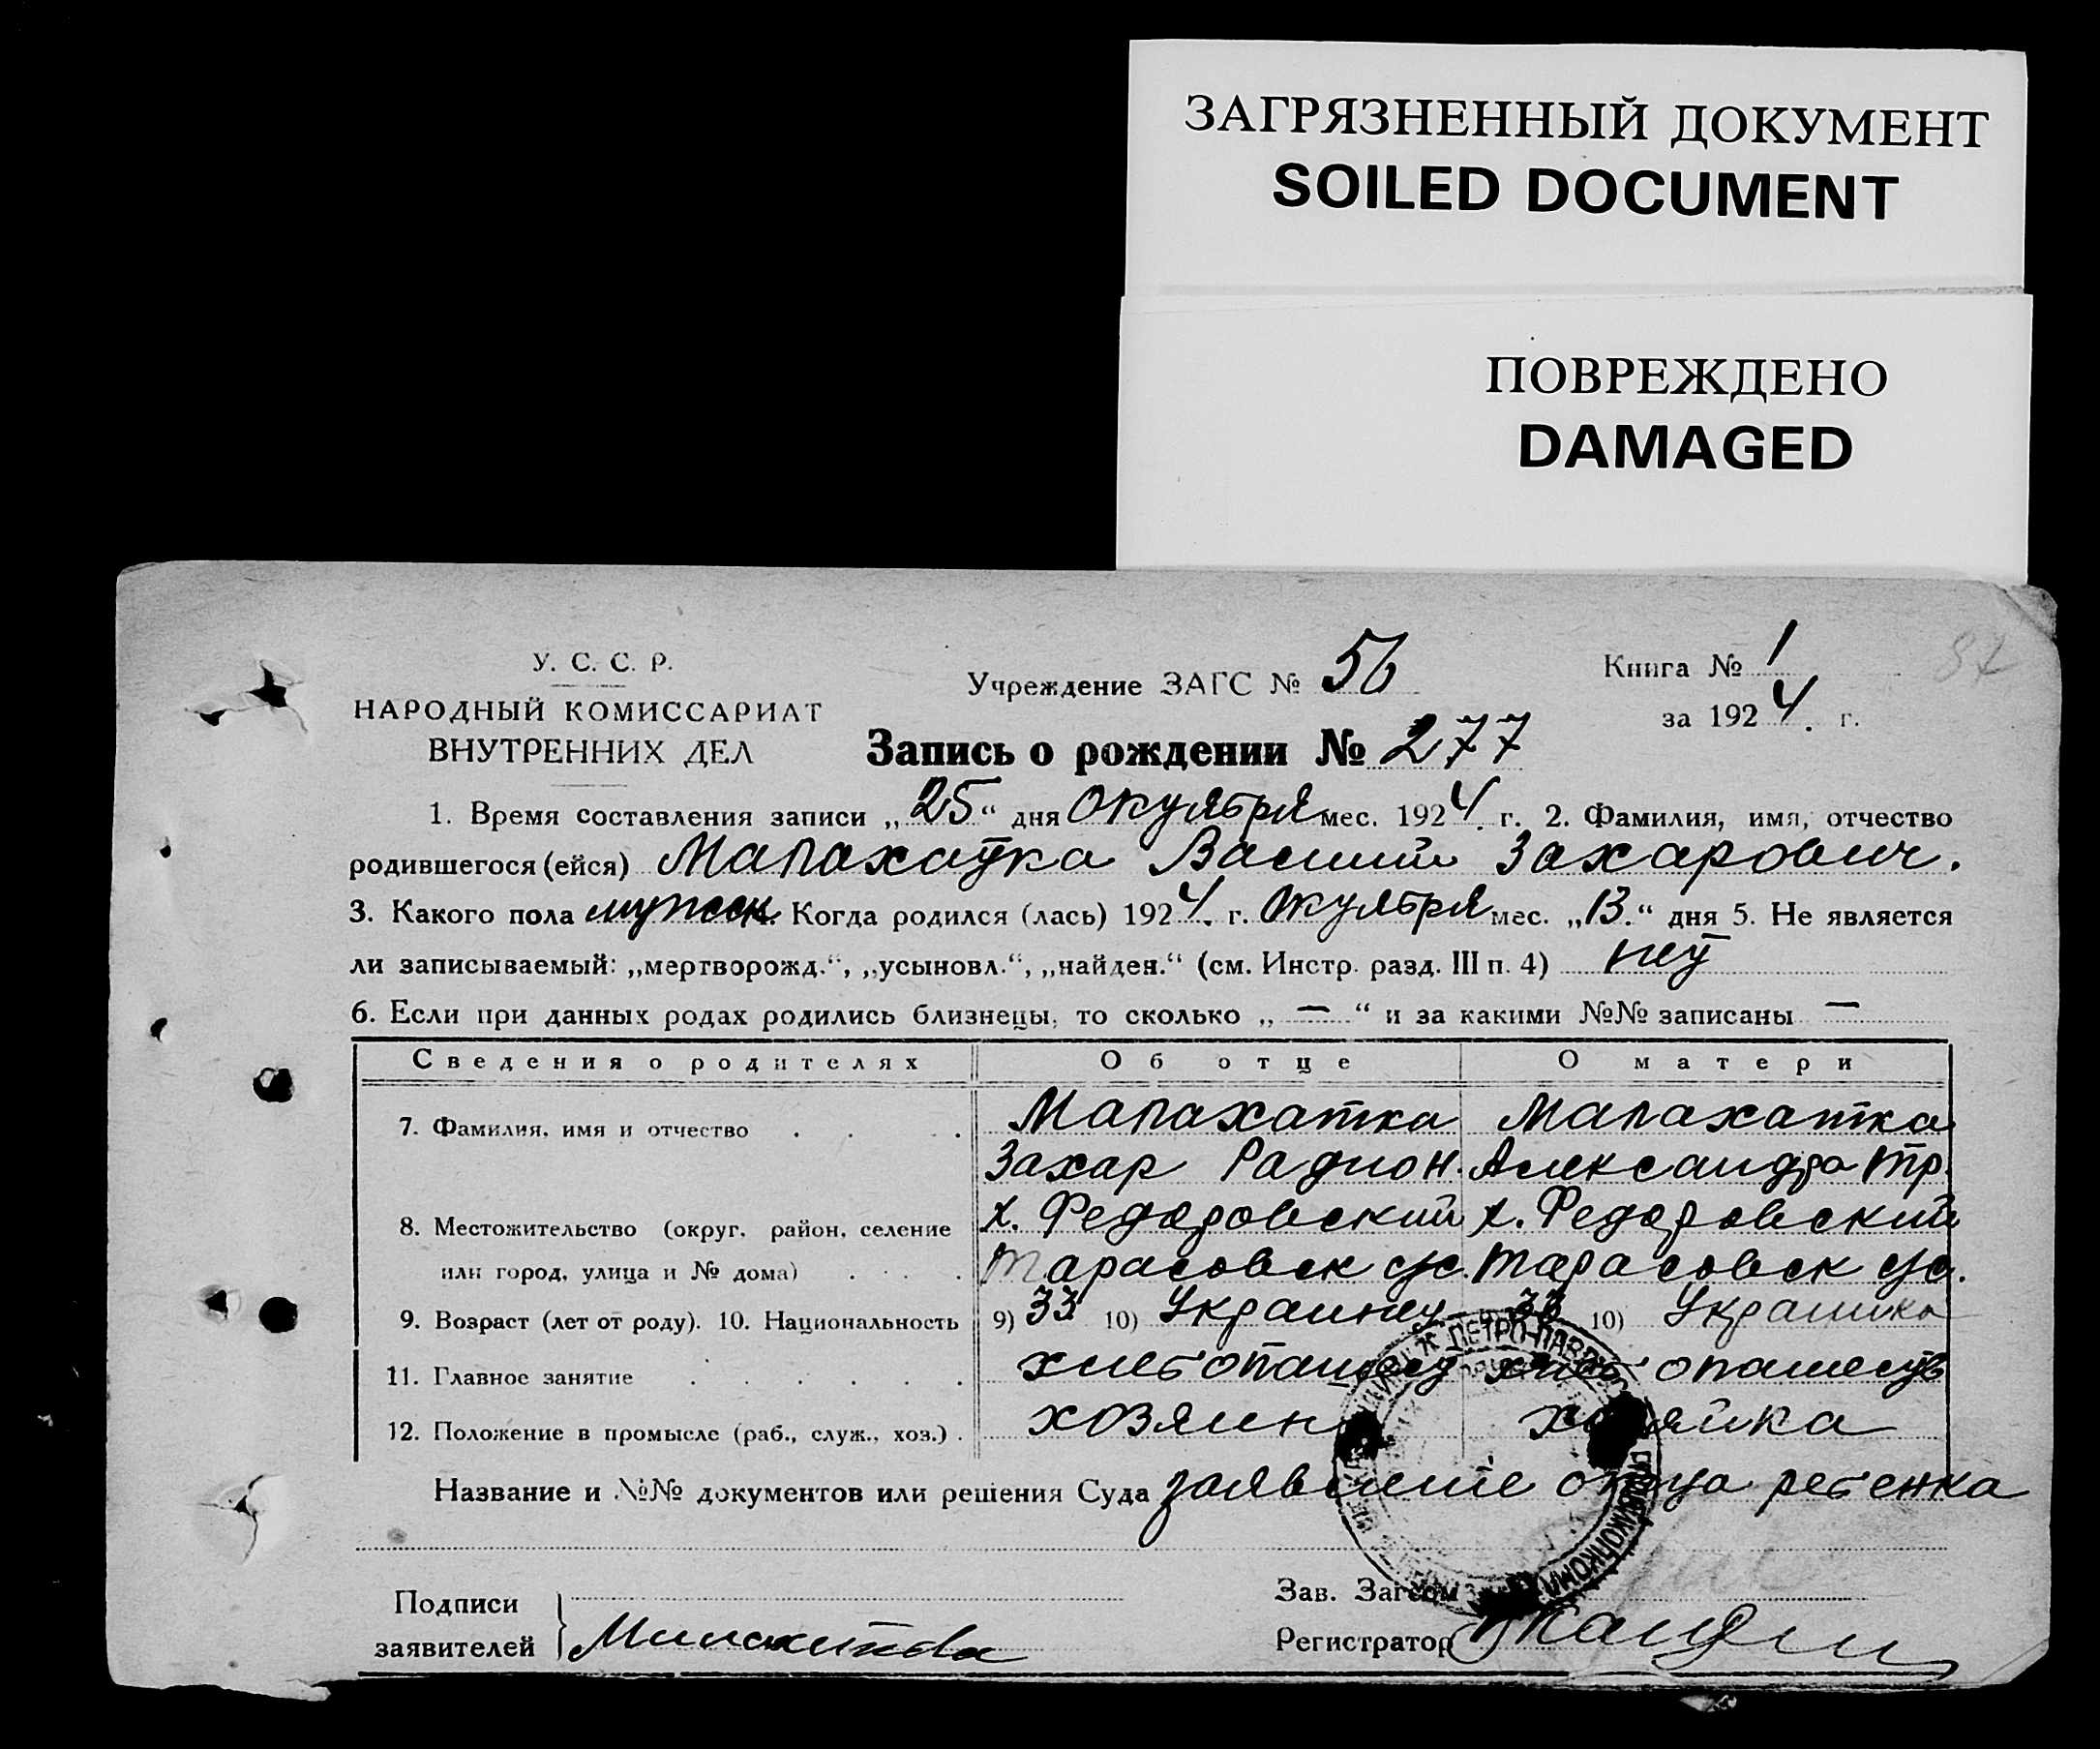 ЗАГРЯЗНЕННЫЙ ДОКУМЕНТ
SOILED DOCUMENT
ПОВРЕЖДЕНО
DAMAGED
У. С. С. Р.
НАРОДНЫЙ КОМИССАРИАТ
ВНУТРЕННИХ ДЕЛ
Учреждение ЗАГС № 56
Книга № 1
за 1924 г.
87
Запись о рождении № 277
1. Время составления записи „25“ дня октября мес. 1924 г. 2. Фамилия, имя, отчество
родившегося (ейся) Малахатка Василий Захарович.
3. Какого пола мужск. Когда родился (лась) 1924 г. октября мес. „13.“ дня 5. Не является
ли записываемый: „мертворожд.“, „усыновл.“, „найден.“ (см. Инстр. разд. III п. 4) нет
6. Если при данных родах родились близнецы, то сколько „ — “ и за какими №№ записаны —
Сведения о родителях Об отце О матери
7. Фамилия, имя и отчество Малахатка Малахатка
Захар Радион. Александра Тр.
8. Местожительство (округ, район, селение х. Федоровский х. Федоровский
или город, улица и № дома) Тарасовск с/с. Тарасовск с/с.
9. Возраст (лет от роду). 10. Национальность 9) 33 10) Украинец 9) 33 10) Украинка
11. Главное занятие хлебопашец хлебопашест
12. Положение в промысле (раб., служ., хоз.) хозяин хозяйка
Название и №№ документов или решения Суда заявление отца ребенка
Подписи
заявителей Малахатка
Зав. Загсом
Регистратор
ПЕТРО-ПАВЛ